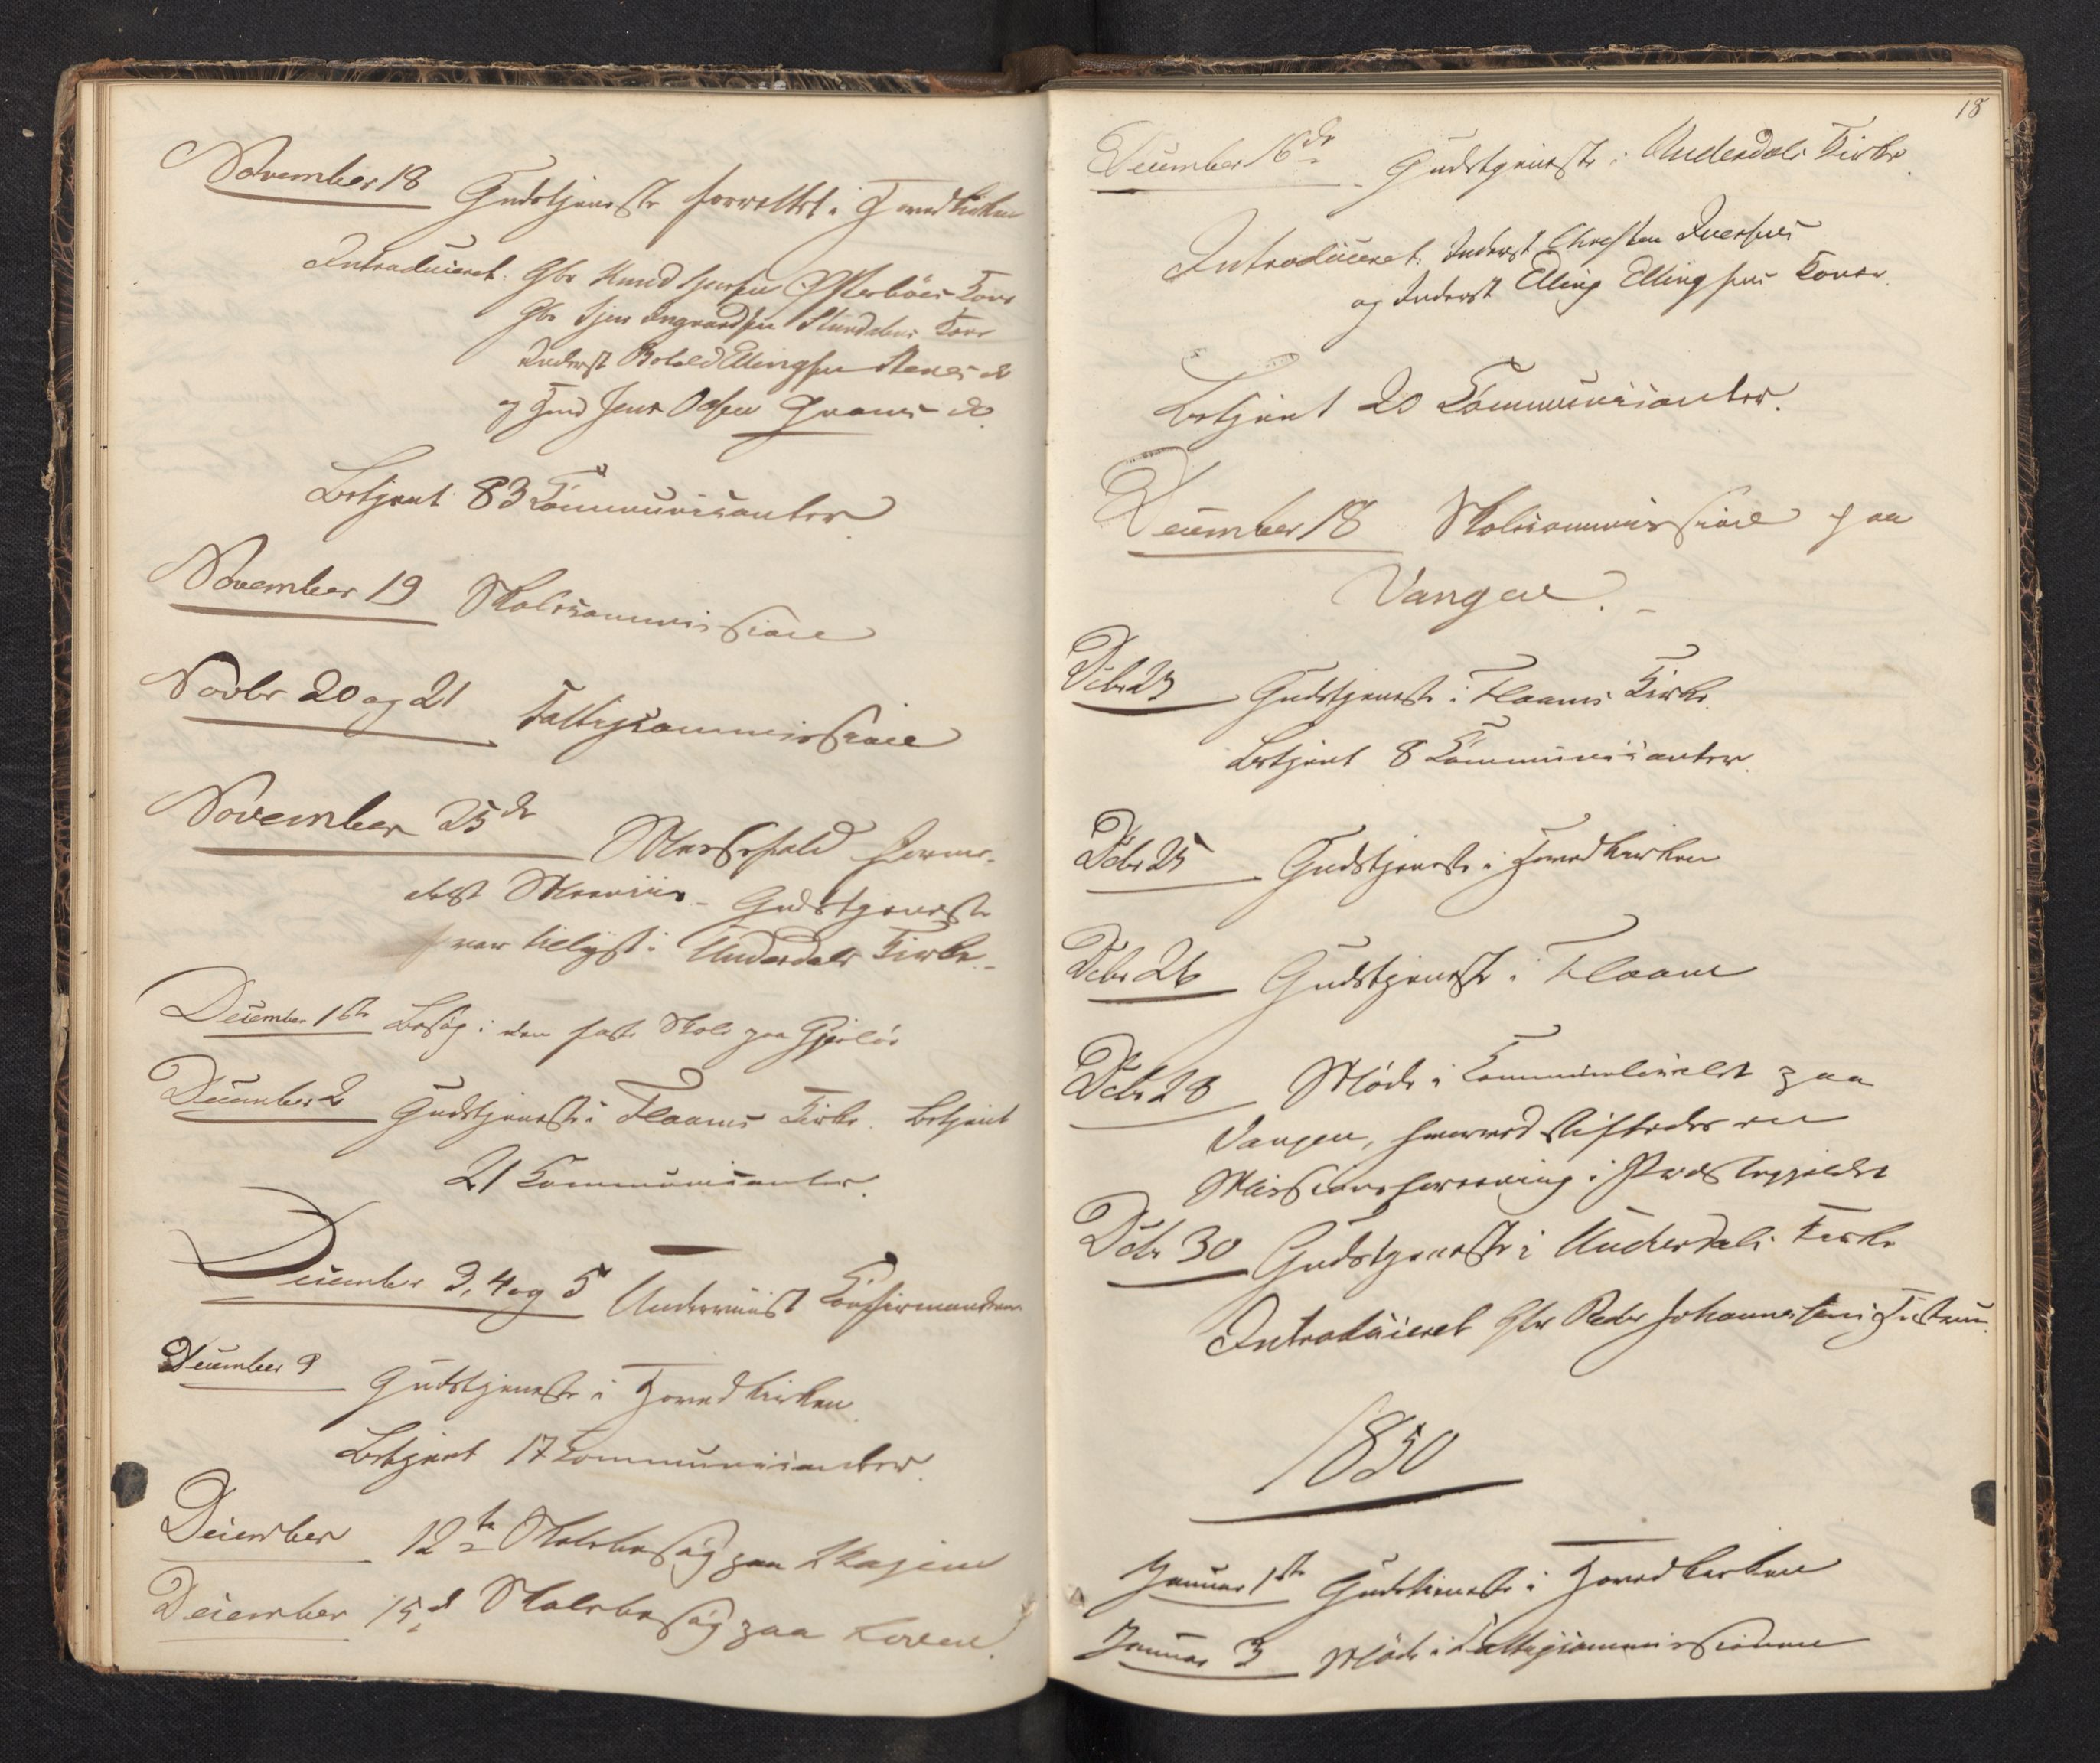 November 18 Gudstjeneste forrettet i Hovedkirken
Introduceret: Gbr Knud Jensen Østerbøes Kone
Gbr Sjur Ingvardsen Stundals Kone
Inderst Botolv Ellingsen do
og Hmd Jens Olsen do.
Betjent 83 Communicanter.
November 19 Skolecommission
Novbr 20 og 21 Fattigcommission
November 25de Messefald forme-
delst Gudstjeneste
var tillyst i Underdals Kirke.
December 1ste Besøg i den faste Skole paa
December 2 Gudstjeneste i Flaams Kirke. Betjent
21 Communicanter.
December 3, 4 og 5 Underviist Confirmanderne
December 9 Gudstjeneste i Hovedkirken
Betjent 17 Communicanter.
December 12te Skolebesøg paa
December 15de Skolebesøg paa
18
December 16de Gudstjeneste i Underdals Kirke.
Introduceret: Inderst Christen Iversens
og Inderst Elling Ellingsens Koner.
Betjent 20 Communicanter.
December 18 Skolecommission paa
Vangen.
Dcbr 23 Gudstjeneste i Flaams Kirke.
Betjent 8 Communicanter.
Dcbr 25 Gudstjeneste i Hovedkirken
Dcbr 26 Gudstjeneste i Flaam
Dcbr 28 Møde i Communelocalet paa
Vangen, hvorved stiftedes en
Missionsforening i Præstegjeldet
Dcbr 30 Gudstjeneste i Underdals Kirke
Introduceret Gbr Peder Johannesens Hustrue.
1850
Januar 1ste Gudstjeneste i Hovedkirken
Januar 3 Møde i Fattigcommissionen